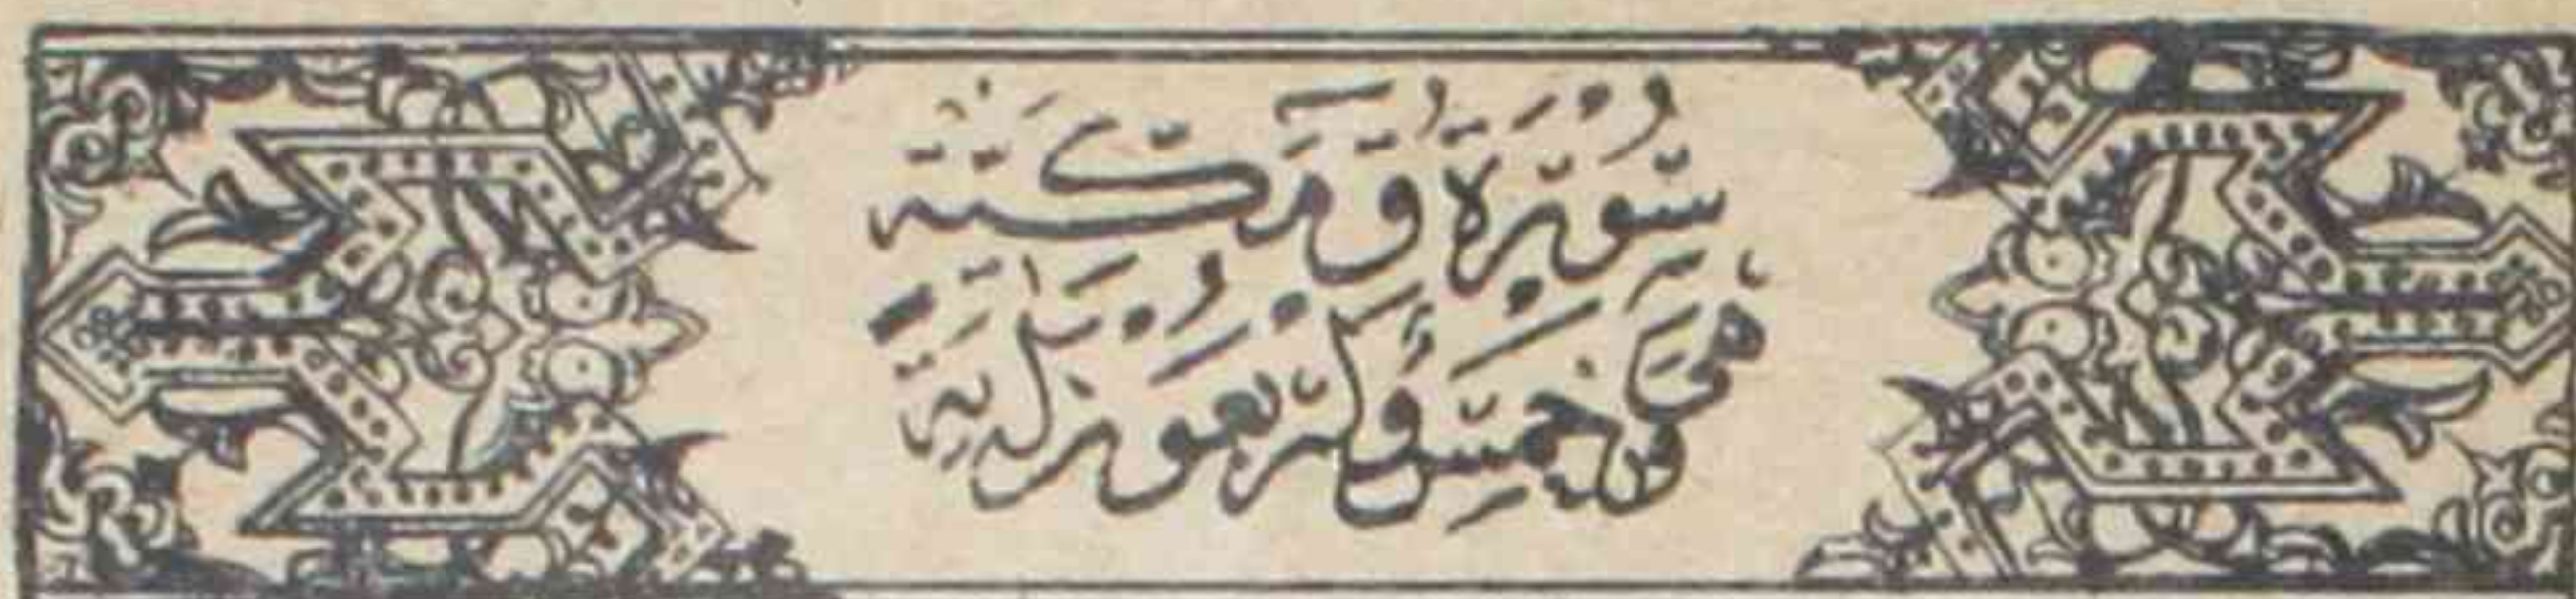 سُّورَةُ قٓ مَكِّيَّةٌ
وَهِيَ خَمْسٌ وَأَرْبَعُونَ آيَةً